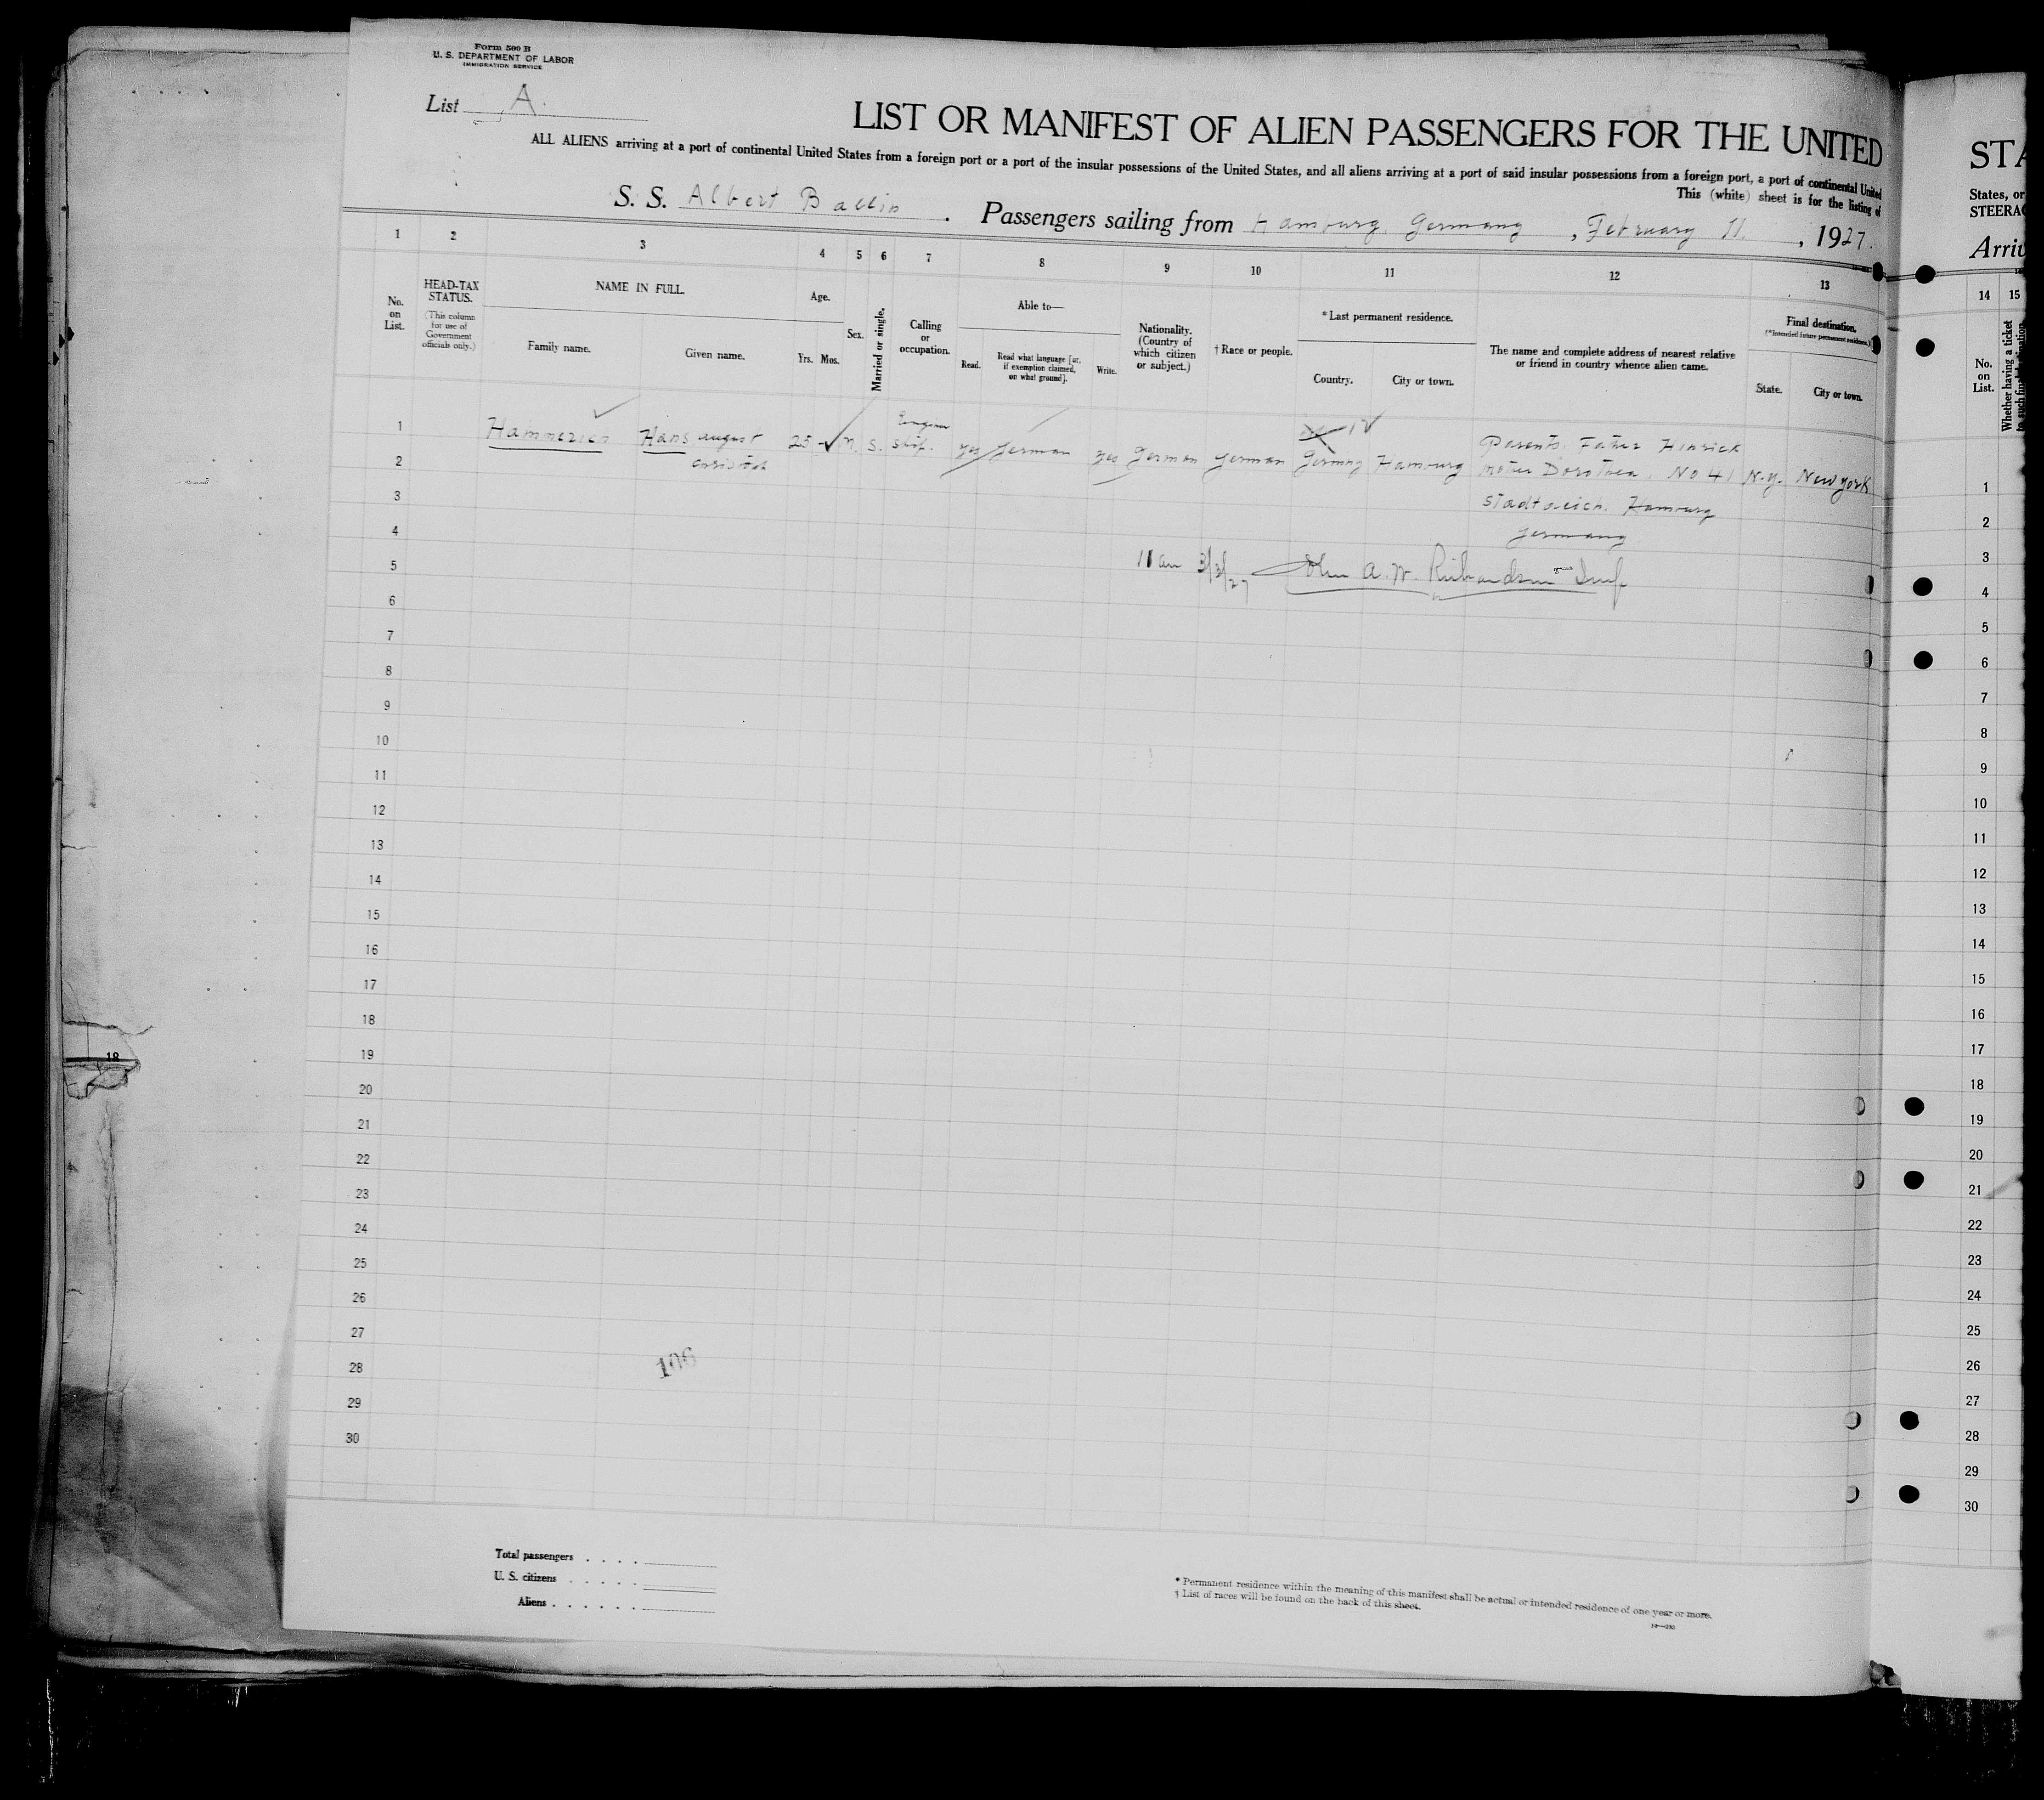 Form 500 B
U. S. DEPARTMENT OF LABOR
IMMIGRATION SERVICE
List A.
LIST OR MANIFEST OF ALIEN PASSENGERS FOR THE UNITED
ALL ALIENS arriving at a port of continental United States from a foreign port or a port of the insular possessions of the United States, and all aliens arriving at a port of said insular possessions from a foreign port, a port of continental United
This (white) sheet is for the listing of
S. S. Albert Ballin . Passengers sailing from Hamburg Germany , February 11. , 1927.
1 2 3 4 5 6 7 8 9 10 11 12 13
No. on List.
HEAD-TAX STATUS.
(This column for use of Government officials only.)
NAME IN FULL.
Family name. Given name.
Age.
Yrs. Mos.
Sex.
Married or single.
Calling or occupation.
Able to—
Read. Read what language [or, if exemption claimed, on what ground]. Write.
Nationality. (Country of which citizen or subject.)
† Race or people.
* Last permanent residence.
Country. City or town.
The name and complete address of nearest relative or friend in country whence alien came.
Final destination.
(*Intended future permanent residence.)
State. City or town.
1 Hans august 25 S. yes German yes German German Germany Hamburg Parents. Father Hinrick
2 mother Dorothea. No 41 N.y. New York
3 Hamburg
4 Germany
5 11 am 3/3/27 John A. W. Richardson Insp
6
7
8
9
10
11
12
13
14
15
16
17
18
19
20
21
22
23
24
25
26
27
28
29
30
106
18
Total passengers
U. S. citizens
Aliens
* Permanent residence within the meaning of this manifest shall be actual or intended residence of one year or more.
† List of races will be found on the back of this sheet.
STA
States, or
STEERAG
Arriv
14 15
No. on List.
Whether having a ticket
1
2
3
4
5
6
7
8
9
10
11
12
13
14
15
16
17
18
19
20
21
22
23
24
25
26
27
28
29
30